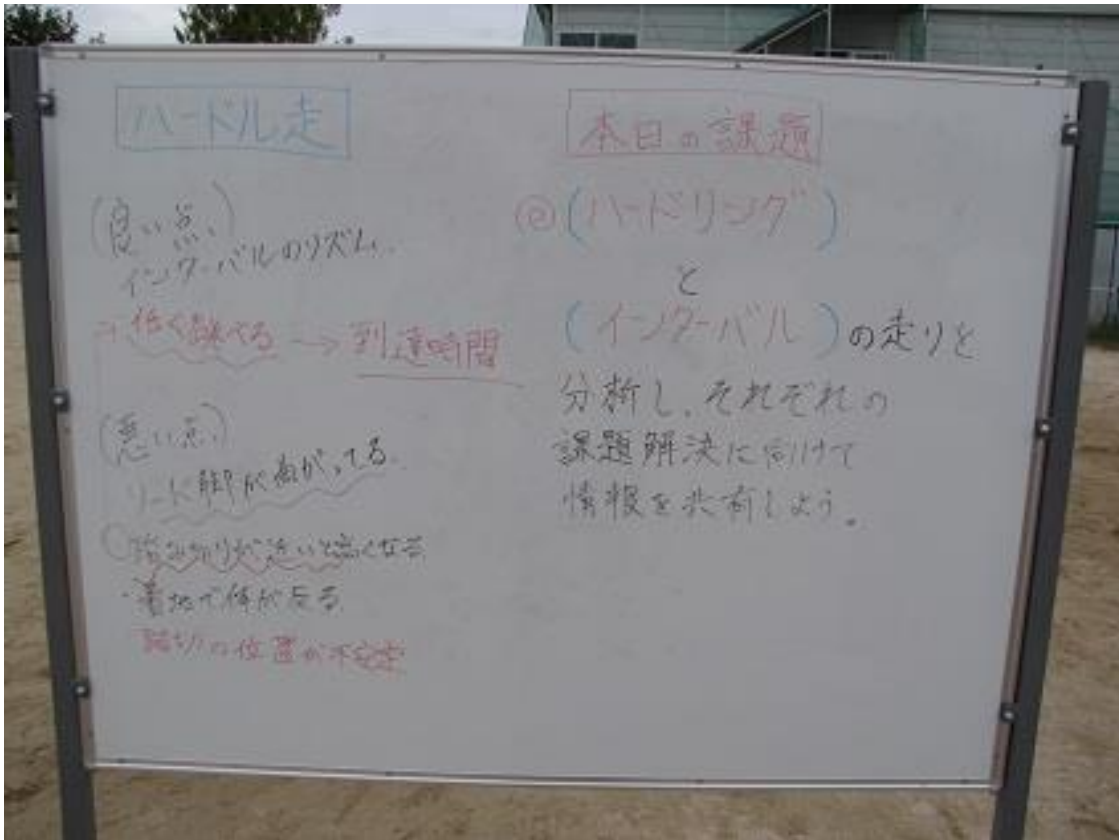 ハードル走
(良い点)
インターバルのリズム.
→低く跳べる → 到達時間
(悪い点)
リード脚が曲がってる.
踏み切りが近いと高くなる
・着地で体が反る
踏切の位置が不安定
本日の課題
◎(ハードリング)
と
(インターバル)の走りを
分析し、それぞれの
課題解決に向けて
情報を共有しよう。